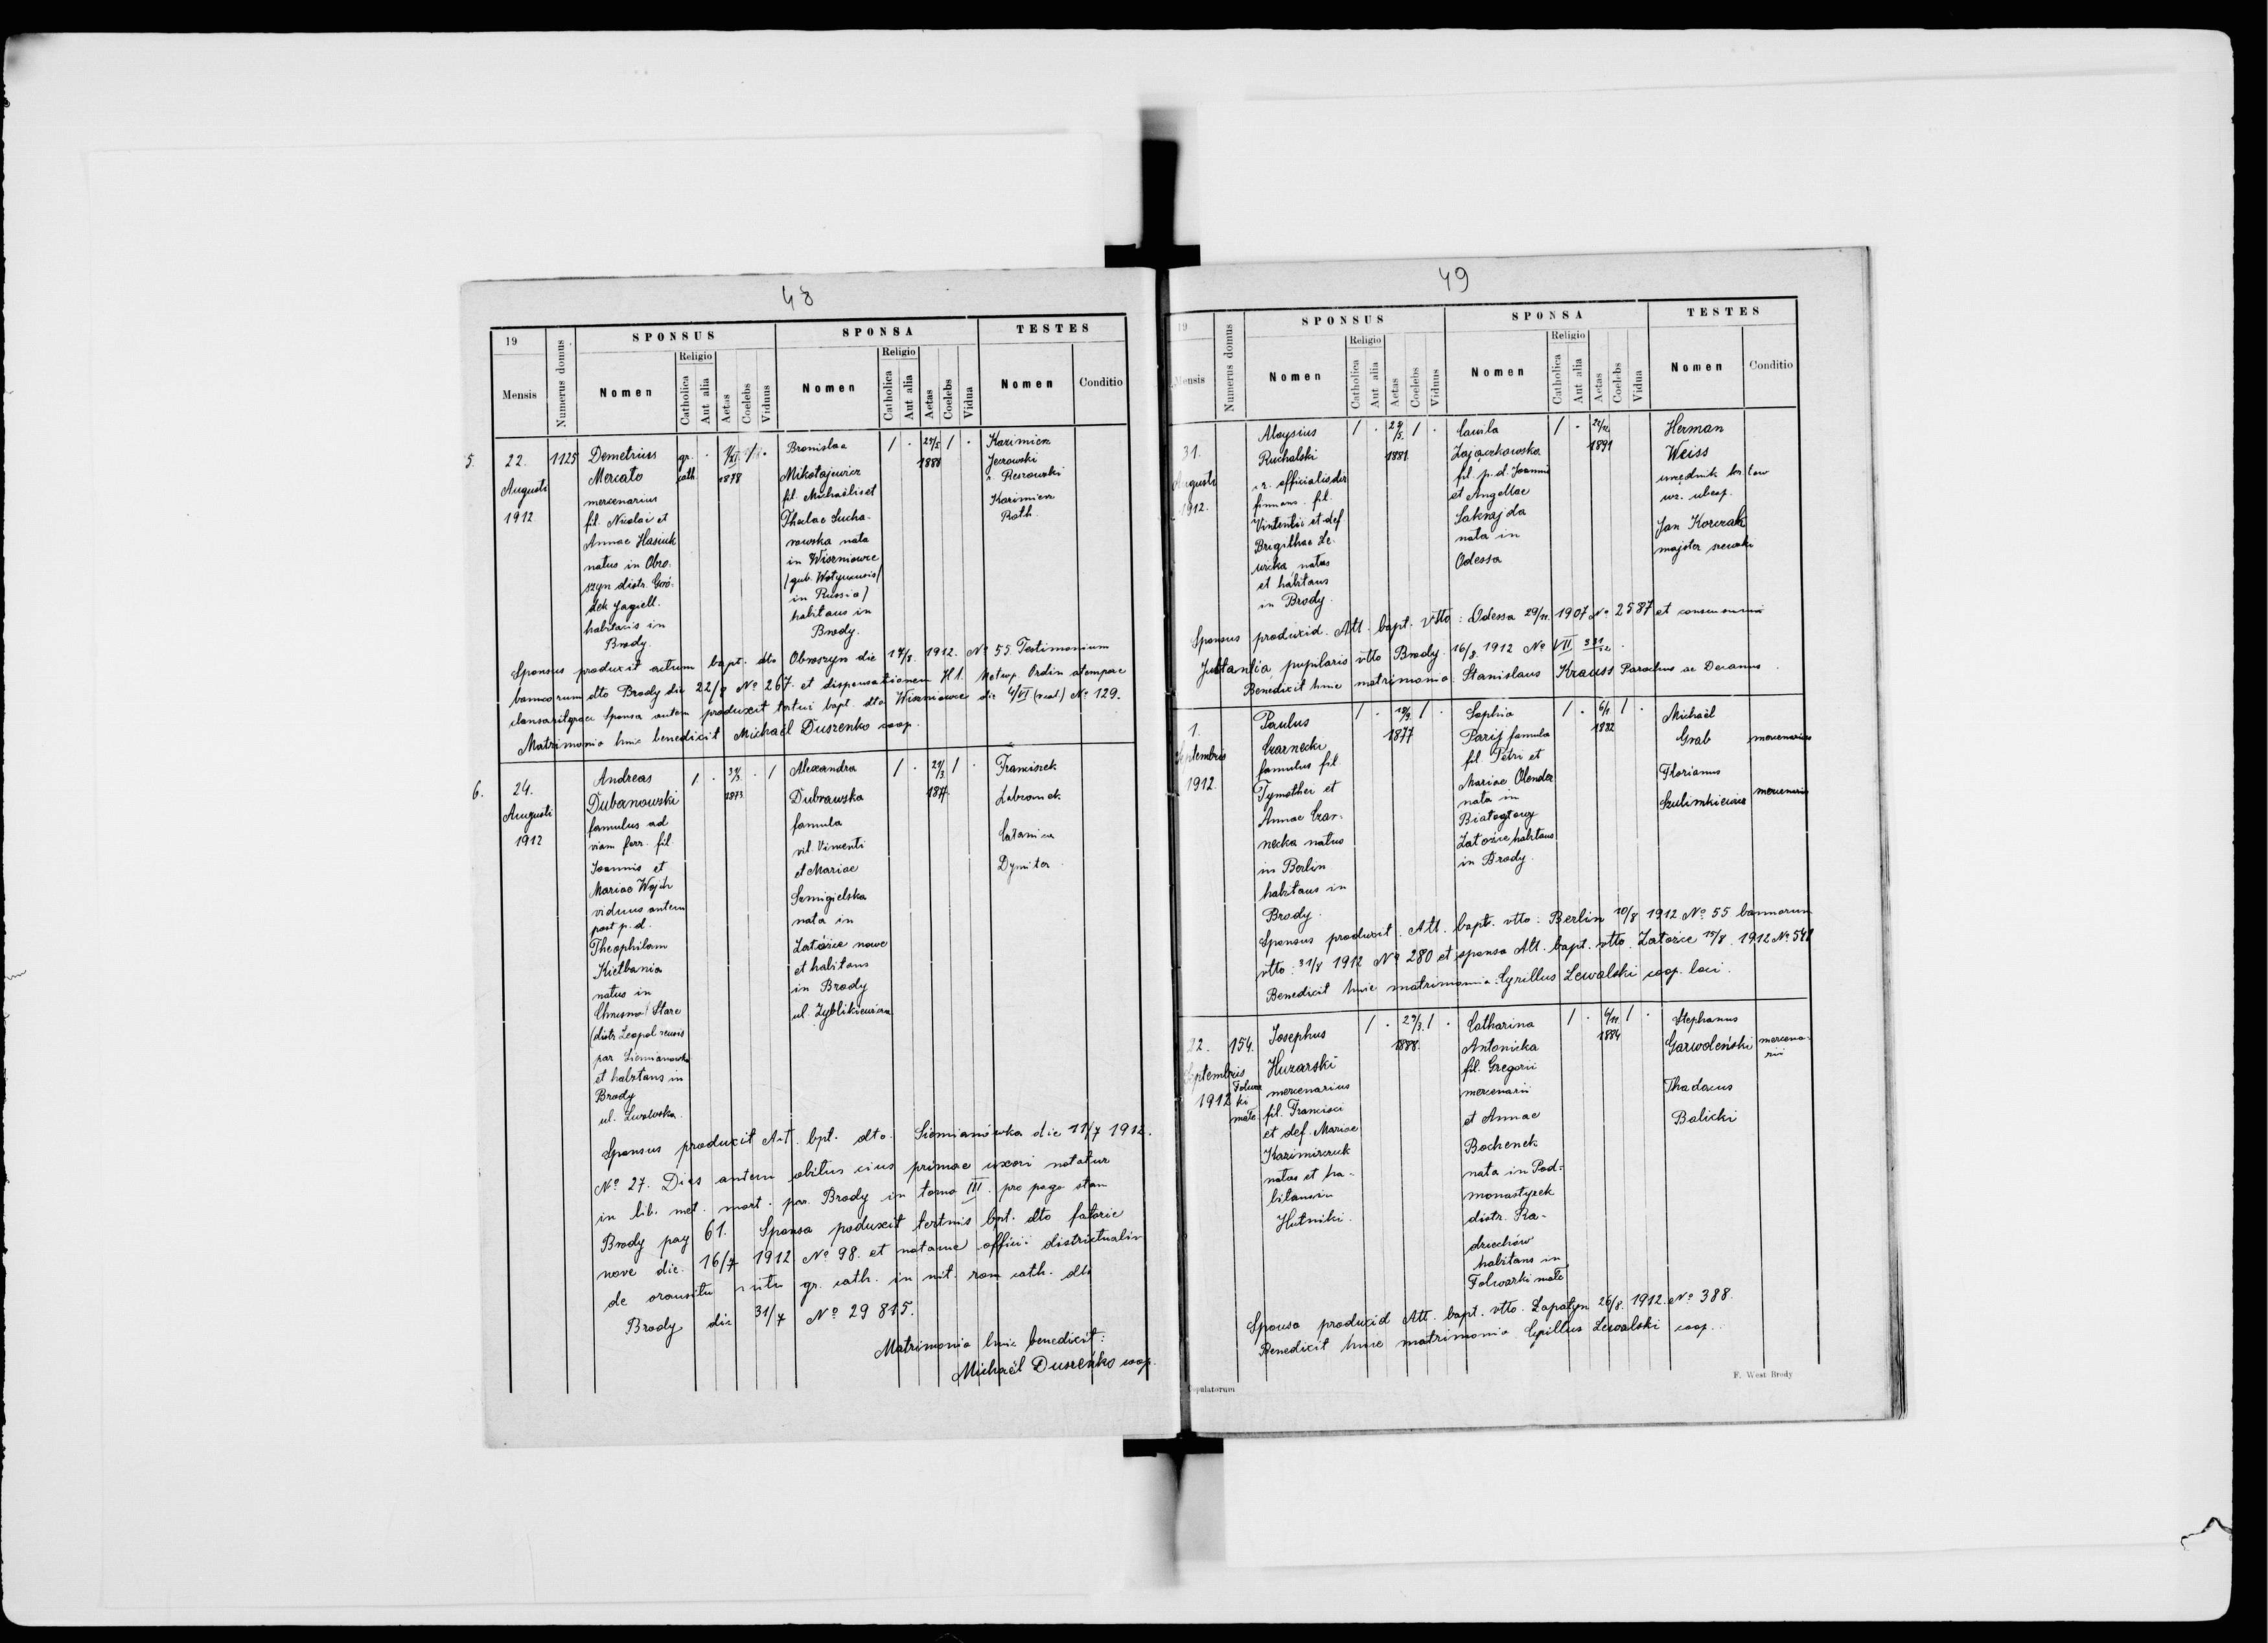 48
19
Mensis
Numerus domus
SPONSUS
Nomen
Religio
Catholica
Aut alia
Aetas
Coelebs
Viduus
SPONSA
Nomen
Religio
Catholica
Aut alia
Aetas
Coelebs
Vidua
TESTES
Nomen
Conditio
5.
22.
Augusti
1912
1125
Demetrius
Mercato
mercenarius
fil. Nicolai et
Annae Hasiuk
natus in Obro-
szyn distr. Gró-
dek Jagiell.
habitans in
Brody.
gr.
cath.
1878
Bronislaa
Mikołajewicz
fil. Michaëlis et
Theclae Sucha-
rowska nata
in Wiszniowce
in Russia)
habitans in
Brody.
1
29/5
1
Kazimierz
Kazimierz
Roth.
Sponsus produxit actum bapt. dto Obroszyn die 17/8. 1912. Nº 55 Testimonium
bannorum dto Brody die 22/8 Nº 267. et dispensationem
Sponsa autem produxit bapt. dto Wiszniowce die 4/VI Nº 129.
Matrimonio huic benedixit Michaël Duszenko coop.
6.
24.
Augusti
1912
Andreas
Dubanowski
famulus ad
viam ferr. fil.
Joannis et
Mariae Wojch
viduus autem
post p. d.
Theophilam
Kiełbania
natus in
Chrusno Stare
par Siemianowka
et habitans in
Brody
ul. Lwowska.
1
1873
1
Alexandra
Dubrawska
famula
fil. Vincenti
et Mariae
Szmigielska
nata in
Załoźce nowe
et habitans
in Brody
ul. Zyblikiewicza
1
1877
1
Franciszek
Dymiter
Sponsus produxit Act. bpt. dto. Siemianówka die 11/7 1912.
Nº 27. Dies autem obitus eius primae uxori notatur
in lib. met. mort. par. Brody in tomo III. pro pago
Brody pag 61. Sponsa poduxit bpt. dto
nove die. 16/7 1912 Nº 98. et officii
de ritu gr. cath. in rit. rom cath. dto
Brody die 31/7 Nº 29 815.
Matrimonio huic benedicit:
Michaël Duszeńko coop.
49
19
Mensis
Numerus domus
SPONSUS
Nomen
Religio
Catholica
Aut alia
Aetas
Coelebs
Viduus
SPONSA
Nomen
Religio
Catholica
Aut alia
Aetas
Coelebs
Vidua
TESTES
Nomen
Conditio
31.
Augusti
1912.
Aloysius
Ruchalski
fil.
Vintentii et def.
Brigithae Le-
natus
et habitans
in Brody.
1
1881.
1
Zajączkowska
fil. p. d. Joannis
et Angellae
Sakrajda
nata in
Odessa
1
1891
Herman
Weiss
urzędnik
Jan Korczak
majster szewski
Sponsus produxid. Att. bapt. vtto: Odessa 29/11. 1907 Nº 2587 et consensum
pupilaris vtto Brody. 16/8. 1912 Nº VII
Benedixit huic matrimonio: Stanislaus Krauss Parochus ac Decanus.
1.
Septembris
1912.
Paulus
Czarnecki
famulus fil.
Tymothei et
Annae Czar-
necka natus
in Berlin
habitans in
Brody.
1
1877
1
Sophia
Parij famula
fil. Petri et
Mariae Olender
nata in
Białogłowy
Załoźce habitans
in Brody.
1
6/1
1882
1
Michaël
Grab
mercenarius
Florianus
mercenarius
Sponsus produxit. Att. bapt. vtto: Berlin 10/8 1912 Nº 55 bannorum
vtto: 31/8 1912 Nº 280 et sponsa Att. bapt. vtto. Załoźce 15/8. 1912 Nº 541
Benedicit huic matrimonio: Cyrillus Lewalski coop. loci.
22.
Septembris
1912
154.
Folwar
ki
małe
Josephus
Huzarski
mercenarius
fil. Francisci
et def. Mariae
Kazimirczuk
natus et ha-
Hutniki.
1
29/3.
1888.
1
Catharina
Antonicka
fil. Gregorii
mercenarii
et Annae
Bochenek
nata in Pod-
monastyrek
distr. Ra-
dziechów
habitans in
Folwarki małe
1
6/11.
1884
1
Stephanus
Garwoleński
mercena-
rii
Thadaeus
Balicki
Sponsa produxid Att. bapt. vtto. Łopatyn 26/8. 1912. Nº 388.
Benedicit huic matrimonio. Cyrillus Lewalski coop.
Copulatorum
F. West Brody